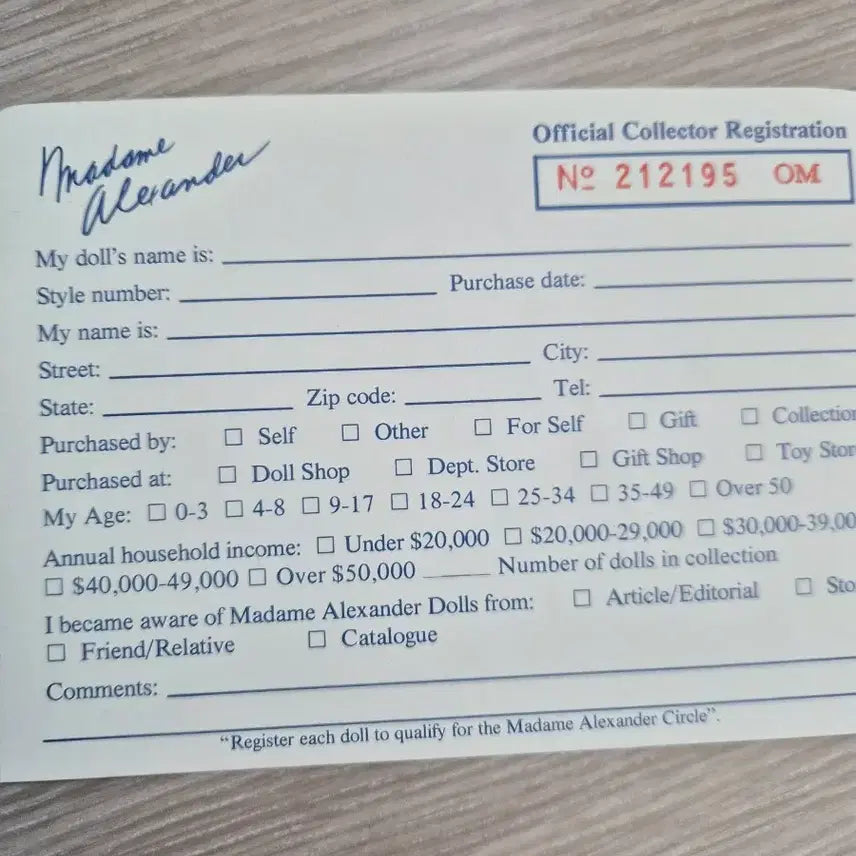 Madame
Alexander
Official Collector Registration
Nº 212195 OM
My doll's name is:
Style number: Purchase date:
My name is:
Street: City:
State: Zip code: Tel:
Purchased by: Self Other For Self Gift Collection
Purchased at: Doll Shop Dept. Store Gift Shop Toy Stor
My Age: 0-3 4-8 9-17 18-24 25-34 35-49 Over 50
Annual household income: Under $20,000 $20,000-29,000 $30,000-39,00
$40,000-49,000 Over $50,000 Number of dolls in collection
I became aware of Madame Alexander Dolls from: Article/Editorial Sto
Friend/Relative Catalogue
Comments:
“Register each doll to qualify for the Madame Alexander Circle”.